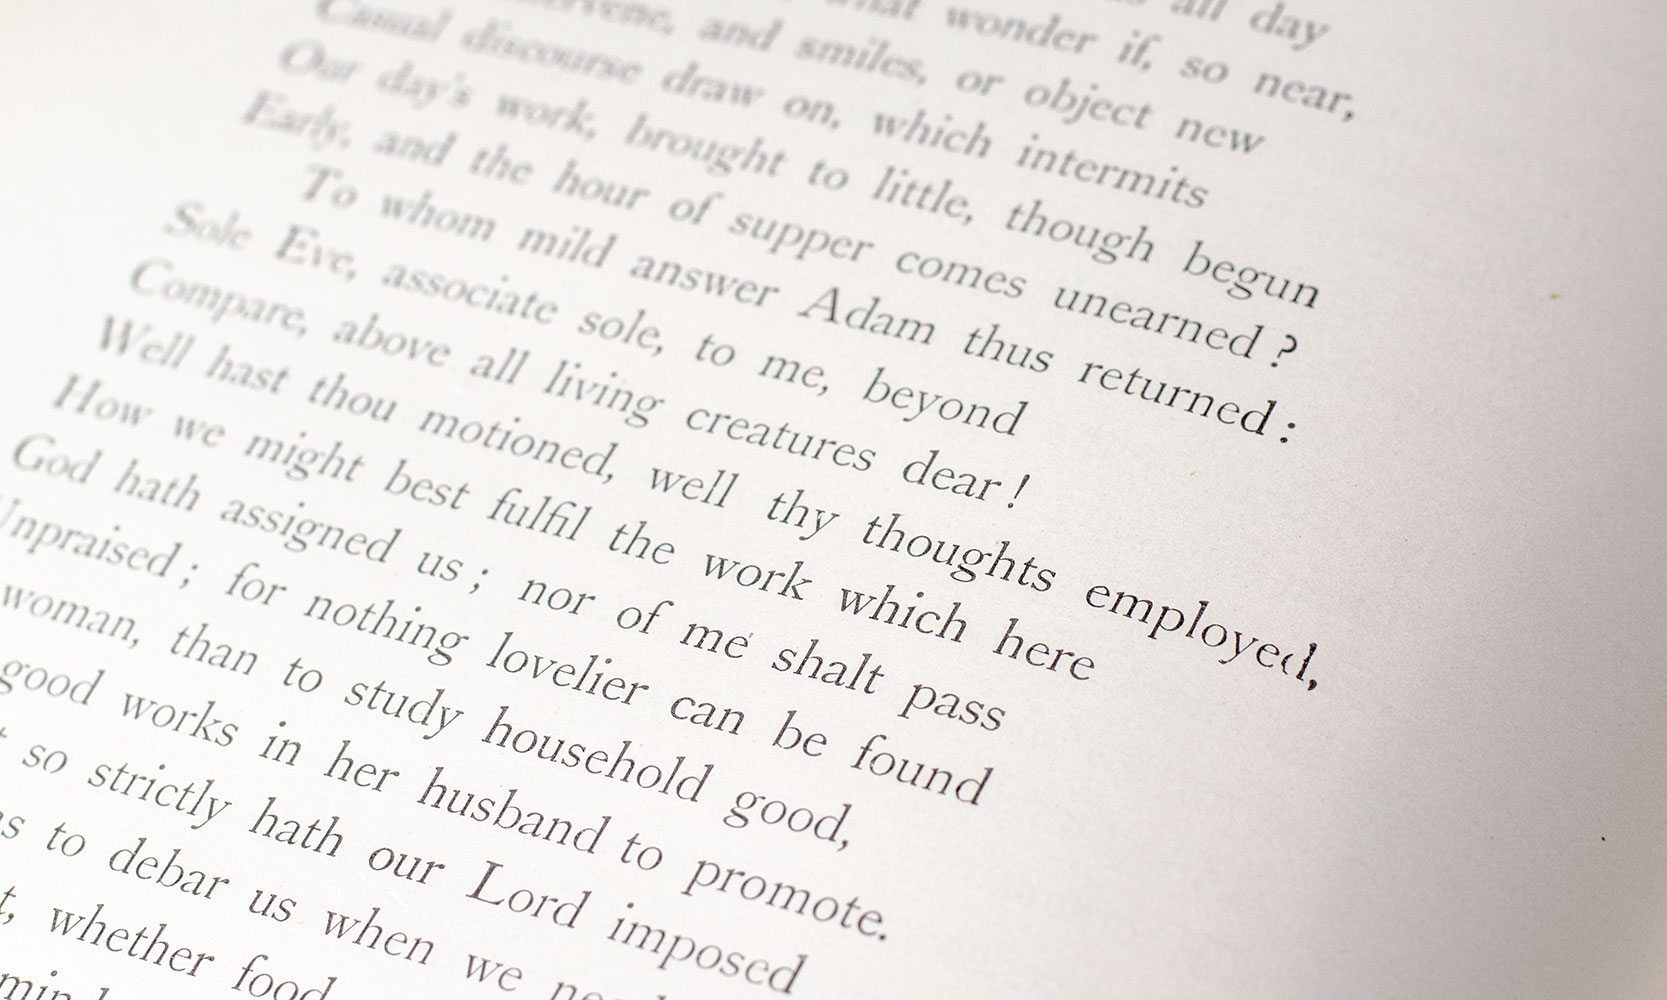 all day
what wonder if, so near,
intervene, and smiles, or object new
Casual discourse draw on, which intermits
Our day's work, brought to little, though begun
Early, and the hour of supper comes unearned ?
To whom mild answer Adam thus returned :
Sole Eve, associate sole, to me, beyond
Compare, above all living creatures dear !
Well hast thou motioned, well thy thoughts employed,
How we might best fulfil the work which here
God hath assigned us ; nor of me shalt pass
Unpraised ; for nothing lovelier can be found
woman, than to study household good,
good works in her husband to promote.
so strictly hath our Lord imposed
as to debar us when we
whether food